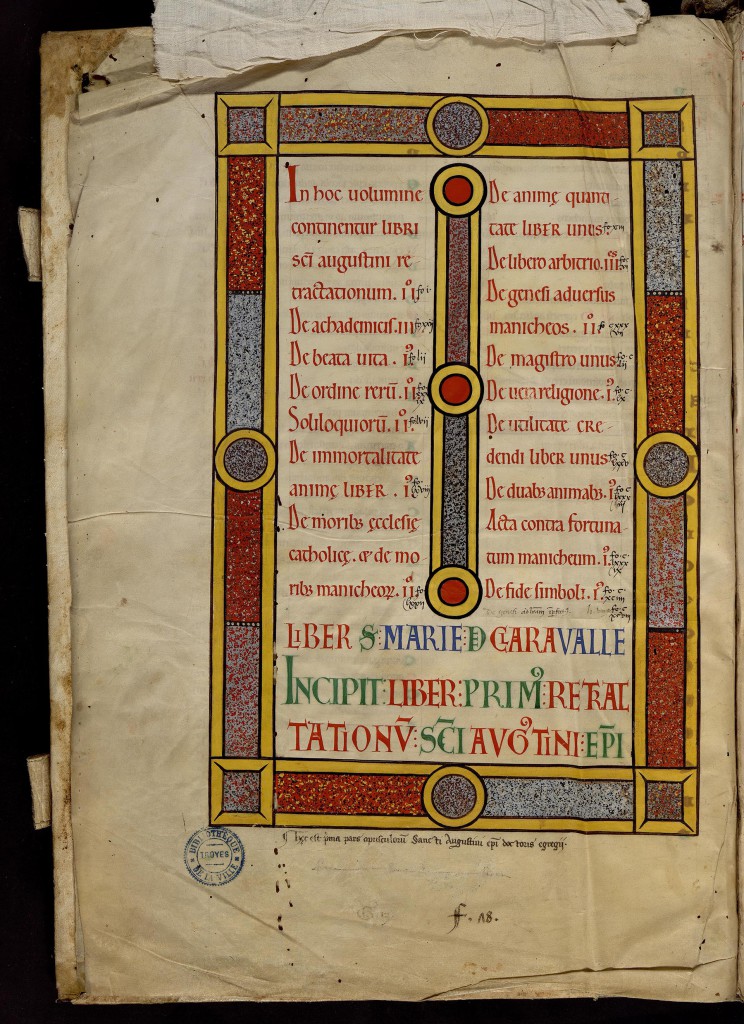 In hoc uolumine
continentur libri
sc̄i augustini re
tractationum. ii. fo i
De achademicis. iii
De beata uita. i. fo lii
De ordine rerū. ii.
Soliloquiorū. ii.
De immortalitate
animę liber. i.
De moribs ęcclesię
catholicę. & de mo
ribs manicheoꝝ. ii
De animę quanti-
tate liber unus
De libero arbitrio. iii
De genesi aduersus
manicheos. ii
De magistro unus
De uera religione. i.
De utilitate cre-
dendi liber unus
De duabs animabs. i.
Acta contra fortuna-
tum manicheum. i.
De fide simboli. i.
LIBER S MARIE D CLARAVALLE
INCIPIT LIBER PRIM RETRAC
TATIONV̄ SC̄I AVGTINI EP̄I
Hec est pma pars opusculorū Sancti Augustini ep̄i doctoris egregii.
BIBLIOTHÈQUE
TROYES
DE LA VILLE
ff. 18.